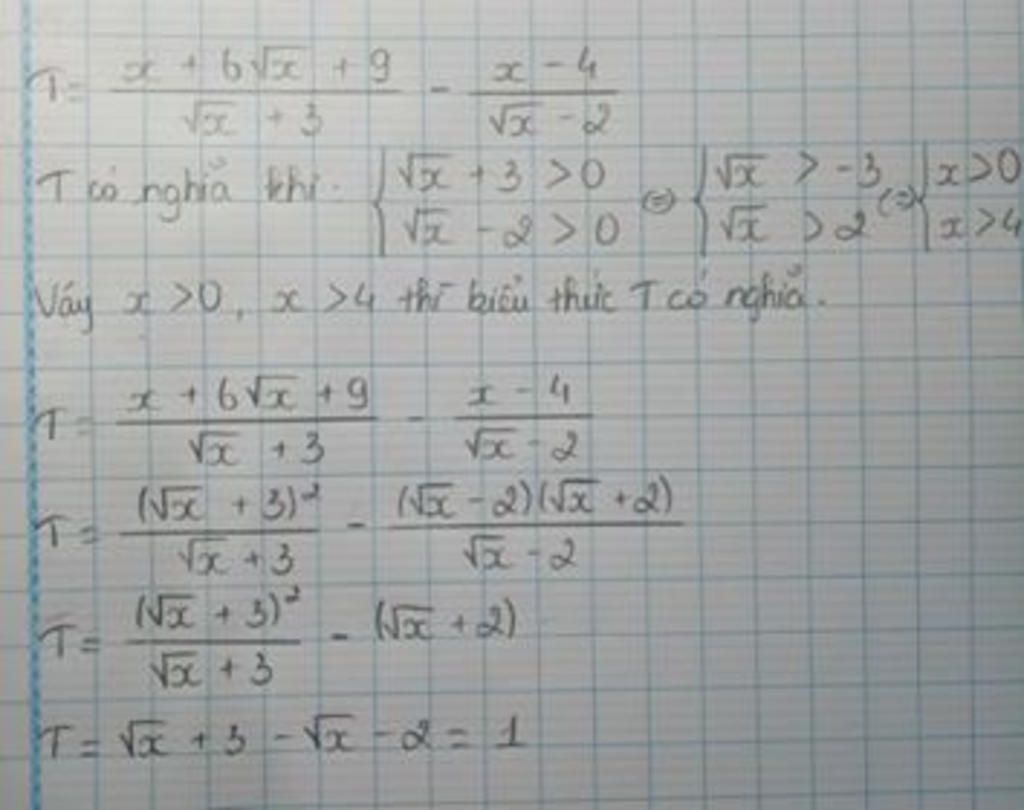 T = \frac{x + 6\sqrt{x} + 9}{\sqrt{x} + 3} - \frac{x - 4}{\sqrt{x} - 2}
T có nghĩa khi: \begin{cases} \sqrt{x} + 3 > 0 \\ \sqrt{x} - 2 > 0 \end{cases} (=) \begin{cases} \sqrt{x} > -3 \\ \sqrt{x} > 2 \end{cases} (=) \begin{cases} x > 0 \\ x > 4 \end{cases}
Vậy x > 0, x > 4 thì biểu thức T có nghĩa.
T = \frac{x + 6\sqrt{x} + 9}{\sqrt{x} + 3} - \frac{x - 4}{\sqrt{x} - 2}
T = \frac{(\sqrt{x} + 3)^2}{\sqrt{x} + 3} - \frac{(\sqrt{x} - 2)(\sqrt{x} + 2)}{\sqrt{x} - 2}
T = \frac{(\sqrt{x} + 3)^2}{\sqrt{x} + 3} - (\sqrt{x} + 2)
T = \sqrt{x} + 3 - \sqrt{x} - 2 = 1